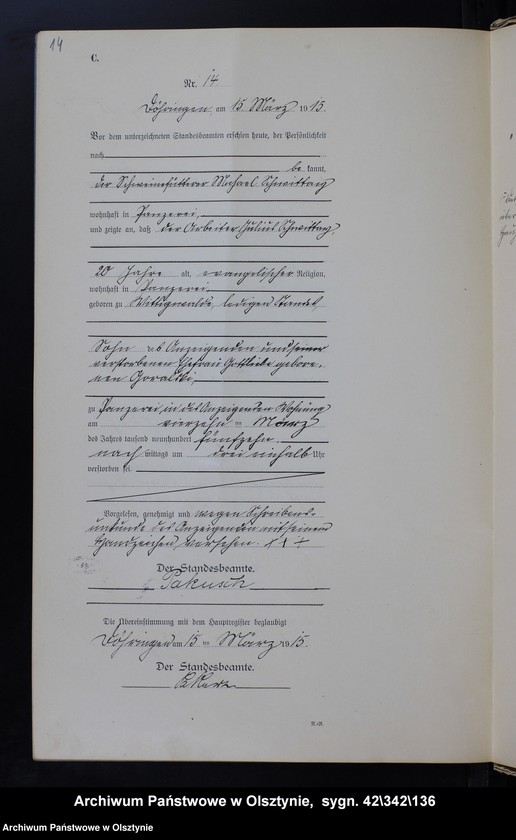 14
C.
Nr. 14
Döhringen am 15 März 1915.
Vor dem unterzeichneten Standesbeamten erschien heute, der Persönlichkeit
nach
be kannt,
der Schweinefütterer Michael Schwittay
wohnhaft in Panzerei,
und zeigte an, daß der Arbeiter Julius Schwittay,
20 Jahre alt, evangelischer Religion,
wohnhaft in Panzerei
geboren zu Wittigwalde, ledigen Standes,
Sohn des Anzeigenden und seiner
verstorbenen Ehefrau Gottliebe gebore-
nen Goralski,
zu Panzerei in des Anzeigenden Wohnung
am vierzehn ten März
des Jahres tausend neunhundert fünfzehn
nach mittags um drei einhalb Uhr
verstorben sei.
Vorgelesen, genehmigt und wegen Schreibens-
unkunde des Anzeigenden mit seinem
Handzeichen versehen. +++
Der Standesbeamte.
Pakusch
Die Übereinstimmung mit dem Hauptregister beglaubigt
Döhringen am 15 ten März 1915.
Der Standesbeamte.
Archiwum Państwowe w Olsztynie, sygn. 42\342\136
Archiwum Państwowe w Olsztynie